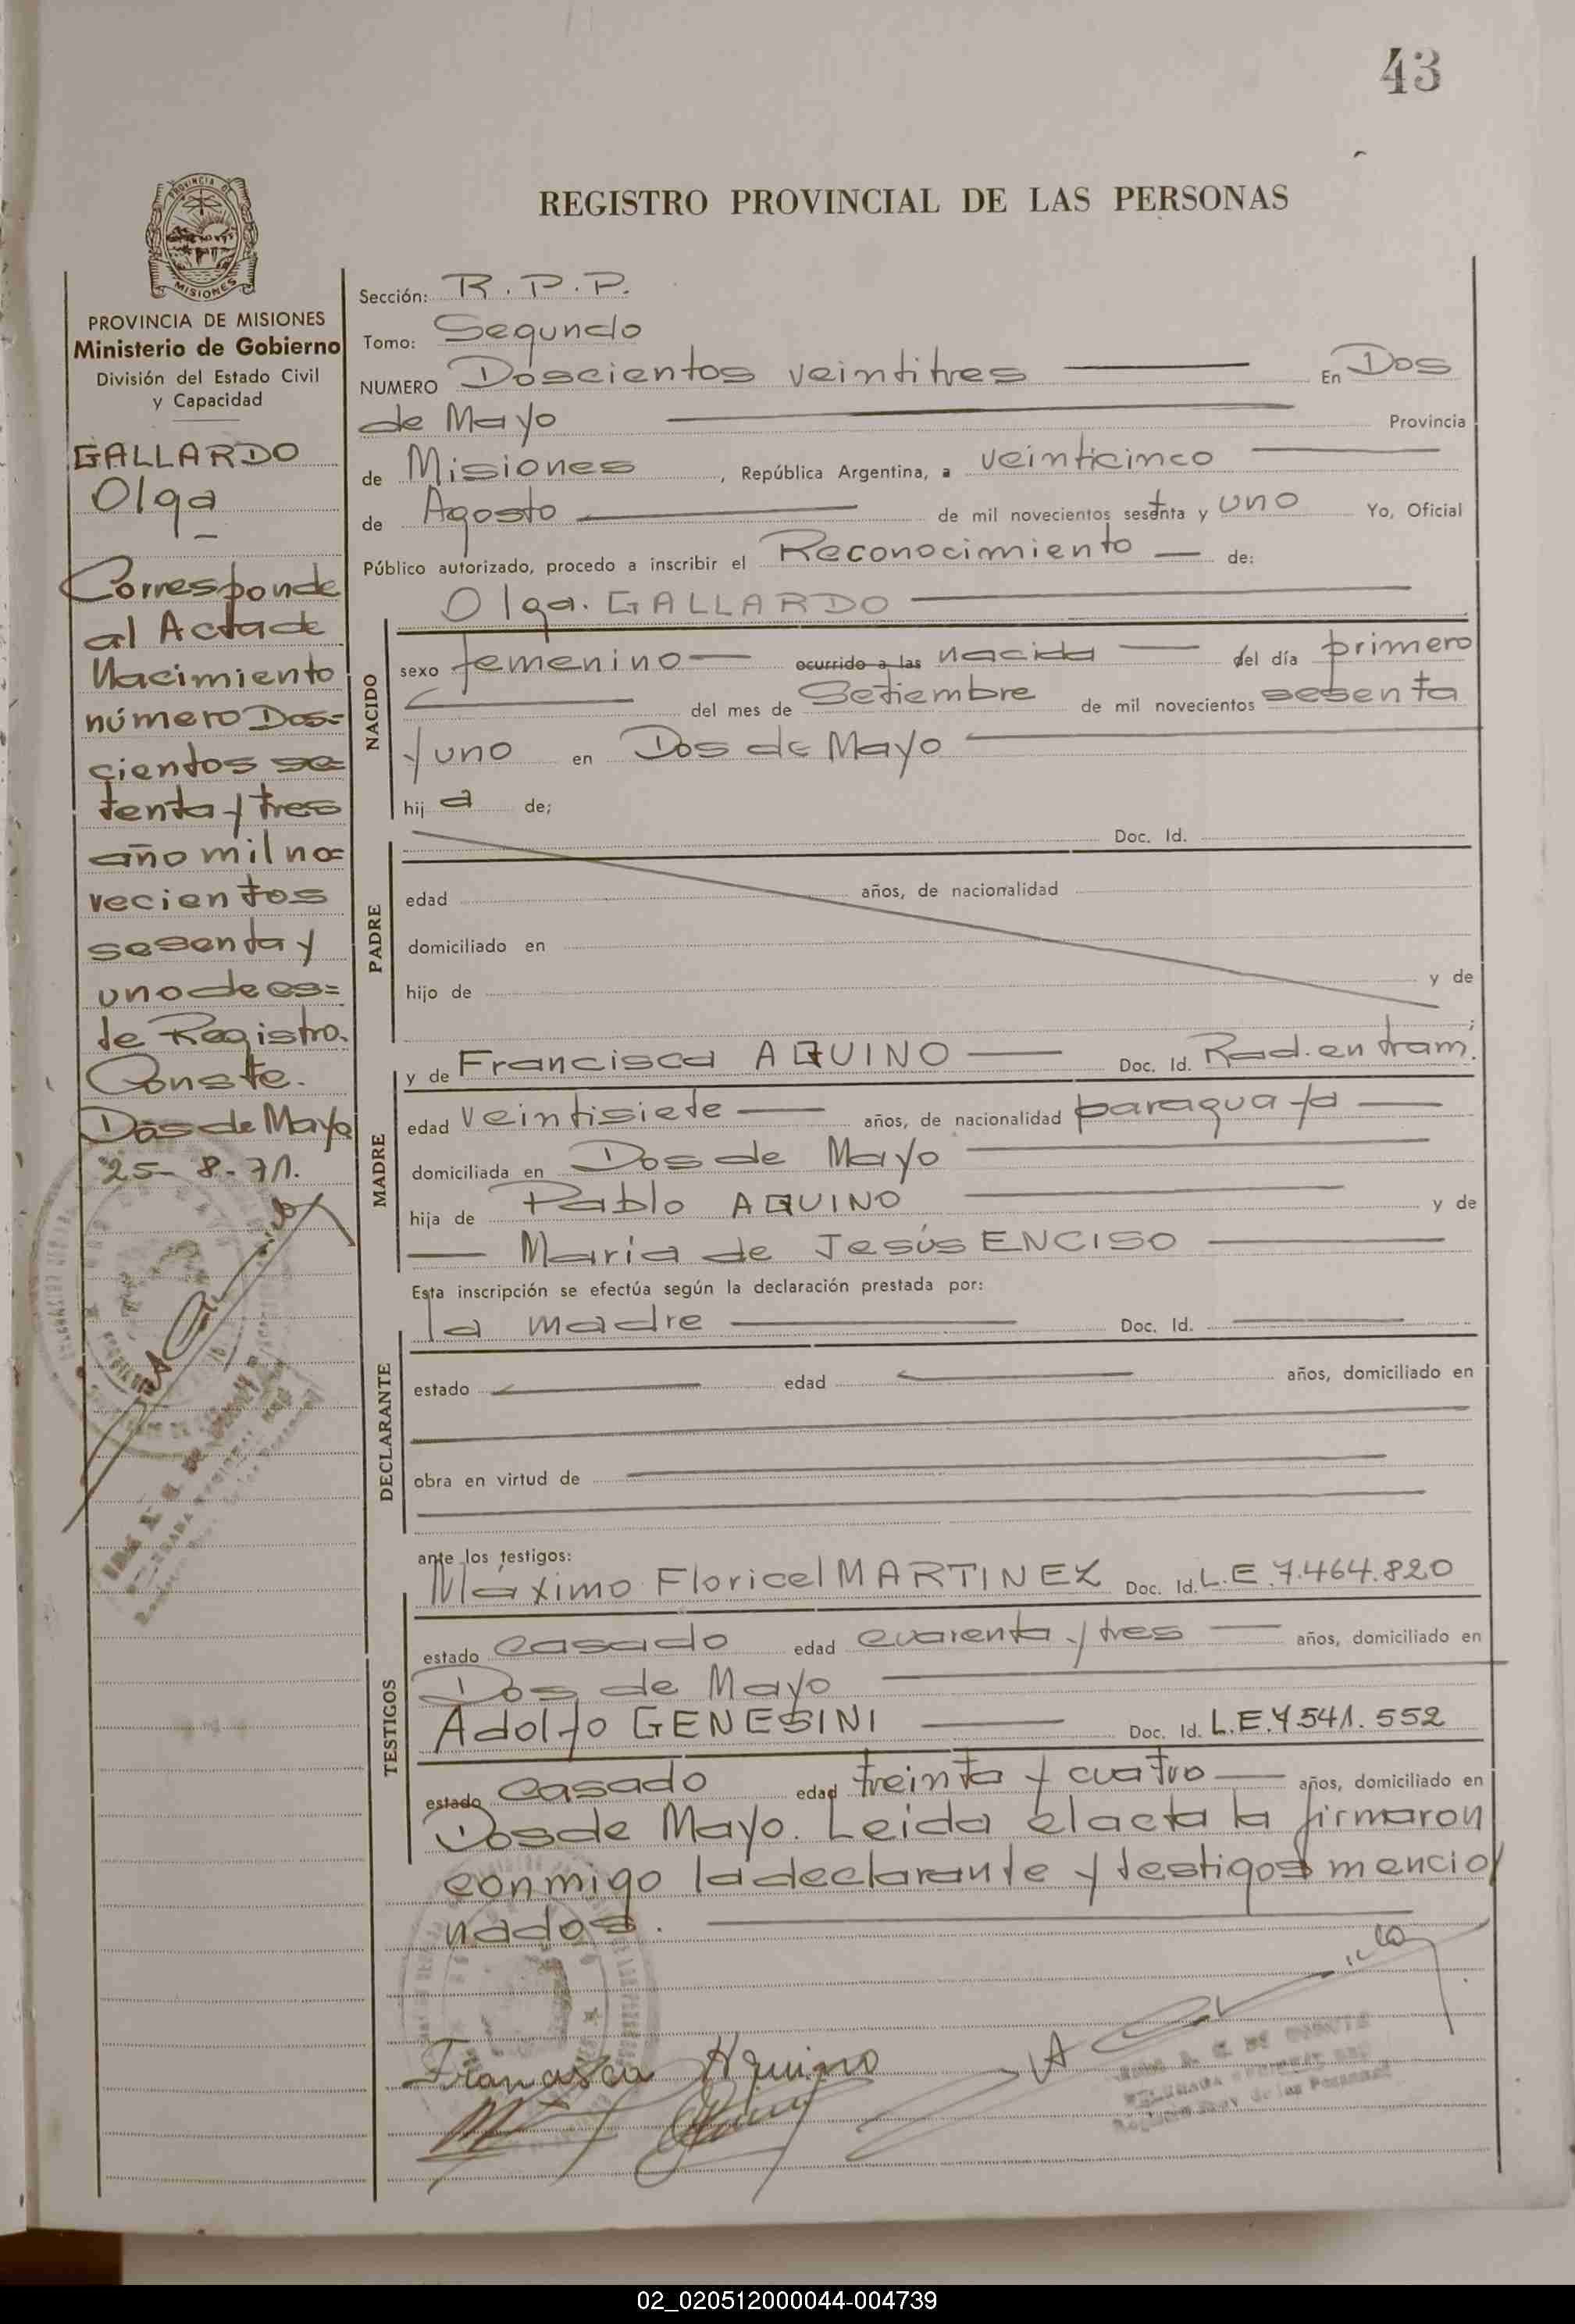 43
PROVINCIA DE
MISIONES
REGISTRO PROVINCIAL DE LAS PERSONAS
PROVINCIA DE MISIONES
Ministerio de Gobierno
División del Estado Civil
y Capacidad
GALLARDO
Olga
Corresponde
al Acta de
Nacimiento
número Dos=
cientos se=
tenta y tres
año mil no=
vecientos
sesenta y
uno de es=
te Registro.
Conste.
Dos de Mayo
25-8-71.
Sección: R.P.P.
Tomo: Segundo
NUMERO Doscientos veintitres En Dos
de Mayo Provincia
de Misiones, República Argentina, a veinticinco
de Agosto de mil novecientos setenta y uno Yo, Oficial
Público autorizado, procedo a inscribir el Reconocimiento de:
Olga. GALLARDO
NACIDO
sexo femenino ocurrido a las nacida del día primero
del mes de Setiembre de mil novecientos sesenta
y uno en Dos de Mayo
hij a de;
PADRE
Doc. Id.
edad años, de nacionalidad
domiciliado en
hijo de y de
;
MADRE
y de Francisca AQUINO Doc. Id. Rad. en tram.
edad veintisiete años, de nacionalidad paraguaya
domiciliada en Dos de Mayo
hija de Pablo AQUINO y de
María de Jesús ENCISO
Esta inscripción se efectúa según la declaración prestada por:
DECLARANTE
la madre Doc. Id.
estado edad años, domiciliado en
obra en virtud de
ante los testigos:
TESTIGOS
Máximo Floricel MARTINEZ Doc. Id. L.E. 7.464.820
estado casado edad cuarenta y tres años, domiciliado en
Dos de Mayo
Adolfo GENESINI Doc. Id. L.E. 7.541.552
estado casado edad treinta y cuatro años, domiciliado en
Dos de Mayo. Leida el acta la firmaron
conmigo la declarante y testigos mencio
nados.
Francisca Aquino
02_020512000044-004739